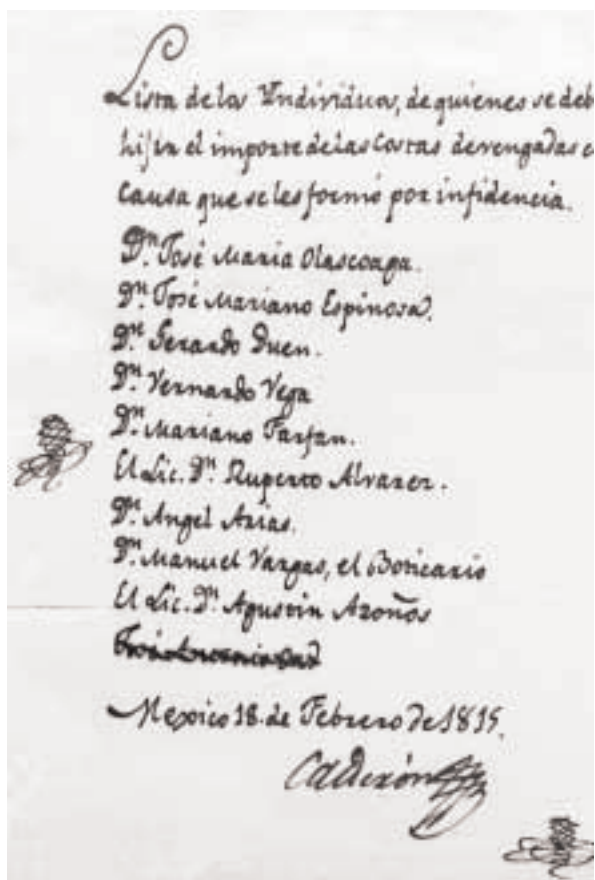 Lista de los Yndividuos, de quienes se deb
el importe delas Costas devengadas e
causa que se les formó por infidencia.
Dn. José Maria Olascoaga.
Dn. José Mariano Espinosa.
Dn. Gerardo Duen.
Dn. Vernardo Vega
Dn. Mariano Farfan.
El Lic. Dn. Ruperto Alvarez.
Dn. Angel Arias.
Dn. Manuel Vargas, el Boticario
El Lic. Dn. Agustin
Mexico 18. de Febrero de 1815.
Calderón